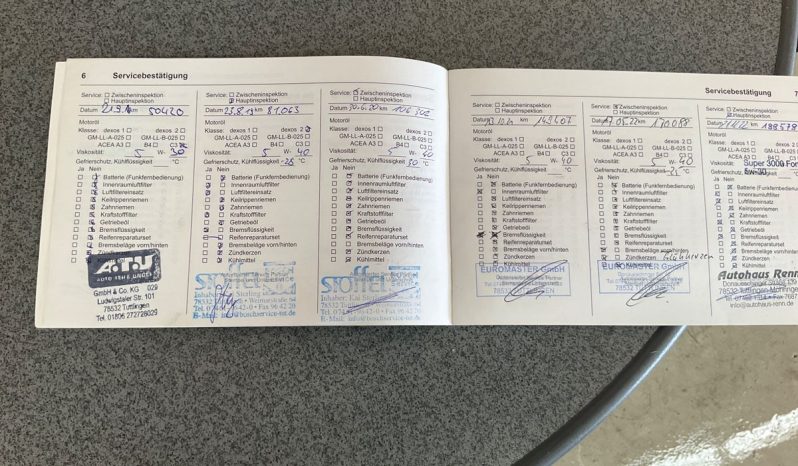 6 Servicebestätigung
Service: Zwischeninspektion
Hauptinspektion
Datum 50420
Motoröl
Klasse: dexos 1 dexos 2
GM-LL-A-025 GM-LL-B-025
ACEA A3 B4 C3
Viskosität: 5 W- 30
Gefrierschutz, Kühlflüssigkeit °C
Ja Nein
Batterie (Funkfernbedienung)
Innenraumluftfilter
Luftfiltereinsatz
Keilrippenriemen
Zahnriemen
Kraftstofffilter
Getriebeöl
Bremsflüssigkeit
Reifenreparaturset
Bremsbeläge vorn/hinten
Zündkerzen
Kühlmittel
A.T.U
AUTO-TEILE-UNGER
GmbH & Co. KG 029
Ludwigstaler Str. 101
78532 Tuttlingen
Tel. 01806 272728029
Service: Zwischeninspektion
Hauptinspektion
Datum km 81.063
Motoröl
Klasse: dexos 1 dexos 2
GM-LL-A-025 GM-LL-B-025
ACEA A3 B4 C3
Viskosität: 5 W- 40
Gefrierschutz, Kühlflüssigkeit -25 °C
Ja Nein
Batterie (Funkfernbedienung)
Innenraumluftfilter
Luftfiltereinsatz
Keilrippenriemen
Zahnriemen
Kraftstofffilter
Getriebeöl
Bremsflüssigkeit
Reifenreparaturset
Bremsbeläge vorn/hinten
Zündkerzen
Kühlmittel
78532 Tuttlingen
Service: Zwischeninspektion
Hauptinspektion
Datum 30.6.20 km
Motoröl
Klasse: dexos 1 dexos 2
GM-LL-A-025 GM-LL-B-025
ACEA A3 B4 C3
Viskosität: 5 W- 40
Gefrierschutz, Kühlflüssigkeit 30 °C
Ja Nein
Batterie (Funkfernbedienung)
Innenraumluftfilter
Luftfiltereinsatz
Keilrippenriemen
Zahnriemen
Kraftstofffilter
Getriebeöl
Bremsflüssigkeit
Reifenreparaturset
Bremsbeläge vorn/hinten
Zündkerzen
Kühlmittel
78532 Tuttlingen
E-Mail: info@boschservice-tut.de
Servicebestätigung 7
Service: Zwischeninspektion
Hauptinspektion
Datum km 149407
Motoröl
Klasse: dexos 1 dexos 2
GM-LL-A-025 GM-LL-B-025
ACEA A3 B4 C3
Viskosität: 5 W- 40
Gefrierschutz, Kühlflüssigkeit °C
Ja Nein
Batterie (Funkfernbedienung)
Innenraumluftfilter
Luftfiltereinsatz
Keilrippenriemen
Zahnriemen
Kraftstofffilter
Getriebeöl
Bremsflüssigkeit
Reifenreparaturset
Bremsbeläge vorn/hinten
Zündkerzen
Kühlmittel
EUROMASTER GmbH
78532 TUTTLINGEN
Service: Zwischeninspektion
Hauptinspektion
Datum km 170088
Motoröl
Klasse: dexos 1 dexos 2
GM-LL-A-025 GM-LL-B-025
ACEA A3 B4 C3
Viskosität: 5 W- 40
Gefrierschutz, Kühlflüssigkeit °C
Ja Nein
Batterie (Funkfernbedienung)
Innenraumluftfilter
Luftfiltereinsatz
Keilrippenriemen
Zahnriemen
Kraftstofffilter
Getriebeöl
Bremsflüssigkeit
Reifenreparaturset
Bremsbeläge vorn/hinten
Zündkerzen Glühkerzen
Kühlmittel
EUROMASTER GmbH
78532 TUTTLINGEN
Service: Zwischeninspektion
Hauptinspektion
Datum km 188578
Motoröl
Klasse: dexos 1
GM-LL-A-025
ACEA A3 B4
Viskosität: Super 3000 For
Gefrierschutz 5w-30
Ja Nein
Batterie (Funkfernb
Innenraumluftfilter
Luftfiltereinsatz
Keilrippenriemen
Zahnriemen
Kraftstofffilter
Getriebeöl
Bremsflüssigkeit
Reifenreparaturset
Bremsbeläge vorn
Zündkerzen
Autohaus Renn
78532 Tuttlingen-Möhringen
info@autohaus-renn.de